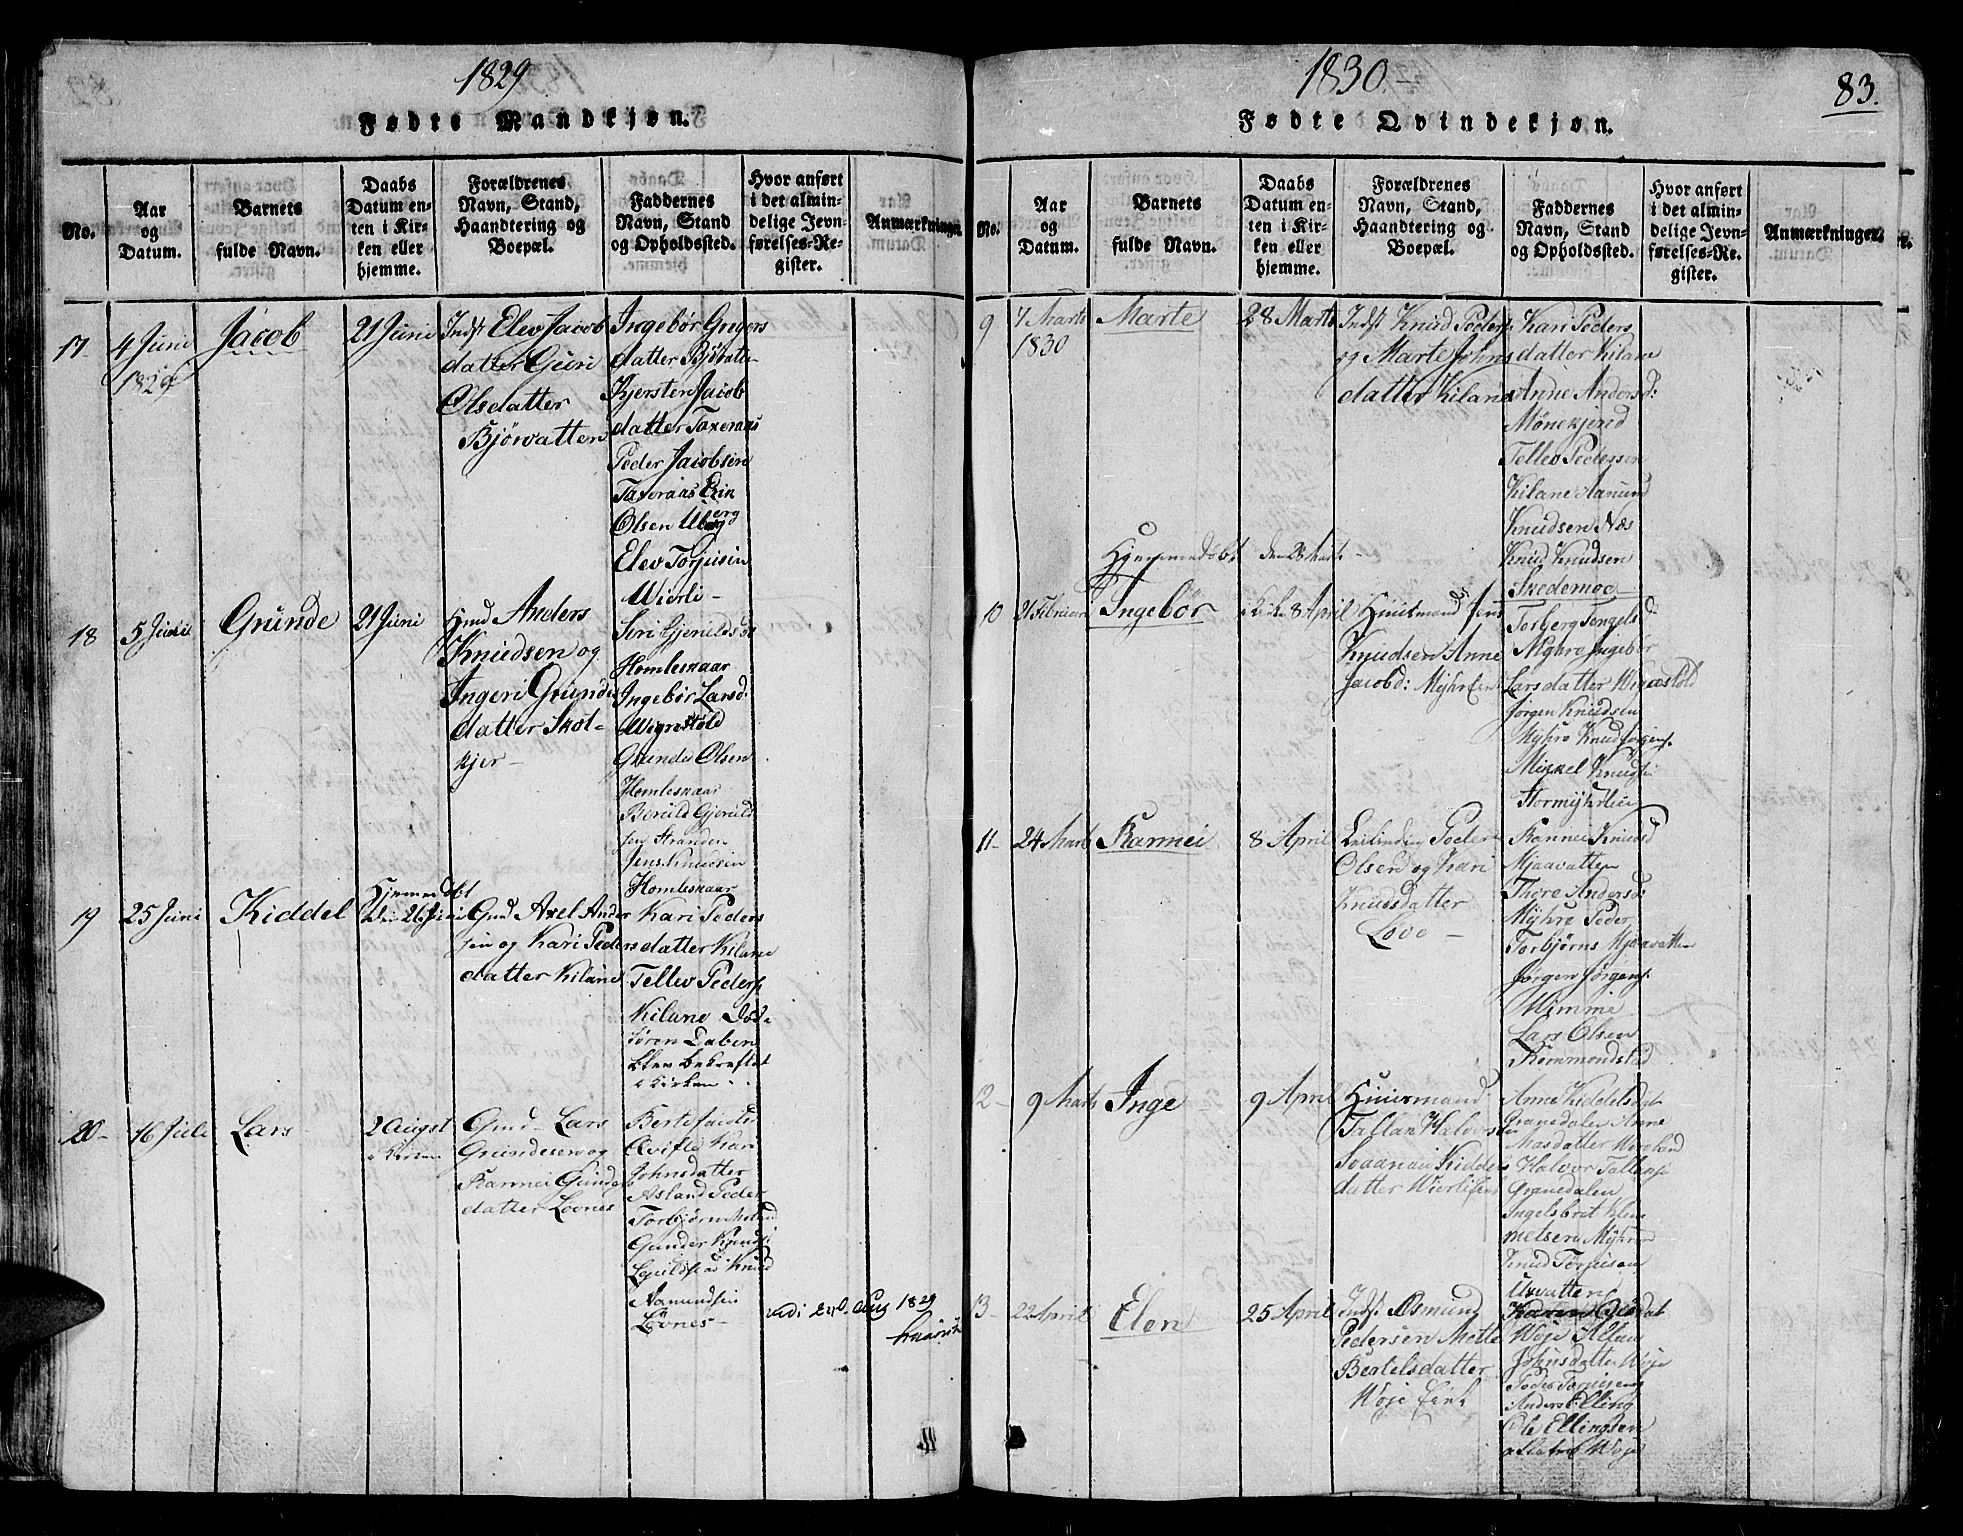 1829
Fødte Mandkjøn.
No.
Aar
og
Datum.
Barnets
fulde Navn.
Daabs
Datum en-
ten i Kir-
ken eller
hjemme.
Forældrenes
Navn, Stand,
Haandtering og
Boepæl.
Faddernes
Navn, Stand
og Opholdssted.
Hvor anført
i det almin-
delige Jevn-
førelses-Re-
gister.
Anmærkninger.
17
4 Juni
1829
Jacob
21 Juni
Indst Elev Jacob
datter Guri
Olsdatter
Bjøwatten
Ingebør Gregers
datter Bjøvatn
Kjersten Jacob
datter Taxeraas
Peder Jacobsen
Taxeraas
Olsen Uberg
Elev Torjusen
Wierli -
18
5 Juni
Grunde
21 Juni
Gmd Anders
Knudsen og
Ingeri Grunde
datter Skot-
kjer -
Siri Gjeruldsd
Homlesnaar
Ingebør Larsd:
Wigrestøld
Grunde Olsen
Homlesnaar
Beruld Gjeruld
sen Stranden
Jens Knudsen
Homlesnaar
19
25 Juni
Kiddel
Hjemmedøbt
den 26 Juni
Gmd Axel Ander
sen og Kari Peders
datter Kilane
Kari Peders
datter Kilane
Tellev Peders
Kilane
Daaben
blev bekræftet
i Kirken
20-
16 Juli
Lars
2 Augst
i Kirken
Gmd- Lars
Grundesen og
Kannei Gunde
datter Lövnes
Kari
Johnsdatter
Asland Peder
Torbjörn
Gunder Knuds
Knud
Aamundsen
Lövnes -
Aug 1829
1830
83.
Fødte Qvindekjøn.
No.
Aar
og
Datum.
Barnets
fulde Navn.
Daabs
Datum en-
ten i Kir-
ken eller
hjemme.
Forældrenes
Navn, Stand,
Haandtering og
Boepæl.
Faddernes
Navn, Stand
og Opholdssted.
Hvor anført
i det almin-
delige Jevn-
førelses-Re-
gister.
Anmærkninger.
9
7 Marts
1830
Marte
28 Marts
Indst Knud Peders
og Marte Johns
datter Kilane
Kari Peders
datter Kilane
Anne Andersd:
Mönekjend
Tellev Pedersen
Kilane Aanund
Knudsen Næs
Knud Knudsen
Skedemoe
10
21 Februar
Hjemmedøbt
Ingebør
den 28 Marts
i Kirken 8 April
Huusmand Jens
Knudsen Anne
Jacobd: Myhreen
Torberg Tengelsd
Myhre Ingebör
Larsdatter Wigrestöld
Jörgen Knudsen
Myhre Knud Jörgens.
Mikkel Knudsen
Stormyhrlien
11-
24 Marts
Kannei
8 April
Leilending Peder
Olsen og Kari
Knudsdatter
Løvo -
Kannei Knudsd
Mjaavatten
Thore Andersd:
Myhre Peder
Torbjørns Mjaavatten
Jørgen Jørgens
Mimme
Lars Olsen
Rømmondstad
12-
9 Marts
Inge
9 April
Huusmand
Tallak Halvorsen
Svaanau Kiddels
datter Wierli
Anne Kiddelsdat
Granedalen Anne
Halvor Tallevs
Granedalen
Ingelsbret Klem
metsen Myhren
Knud Torjusen
Uxvatten
13-
22 April
Elen
25 April
Indst Osmund
Pedersen Mette
Bertelsdatter
Woje
Woje
Johnsdatter Woje
Peder Torjusen
Anders Elling
Ole Ellingsen
Woje